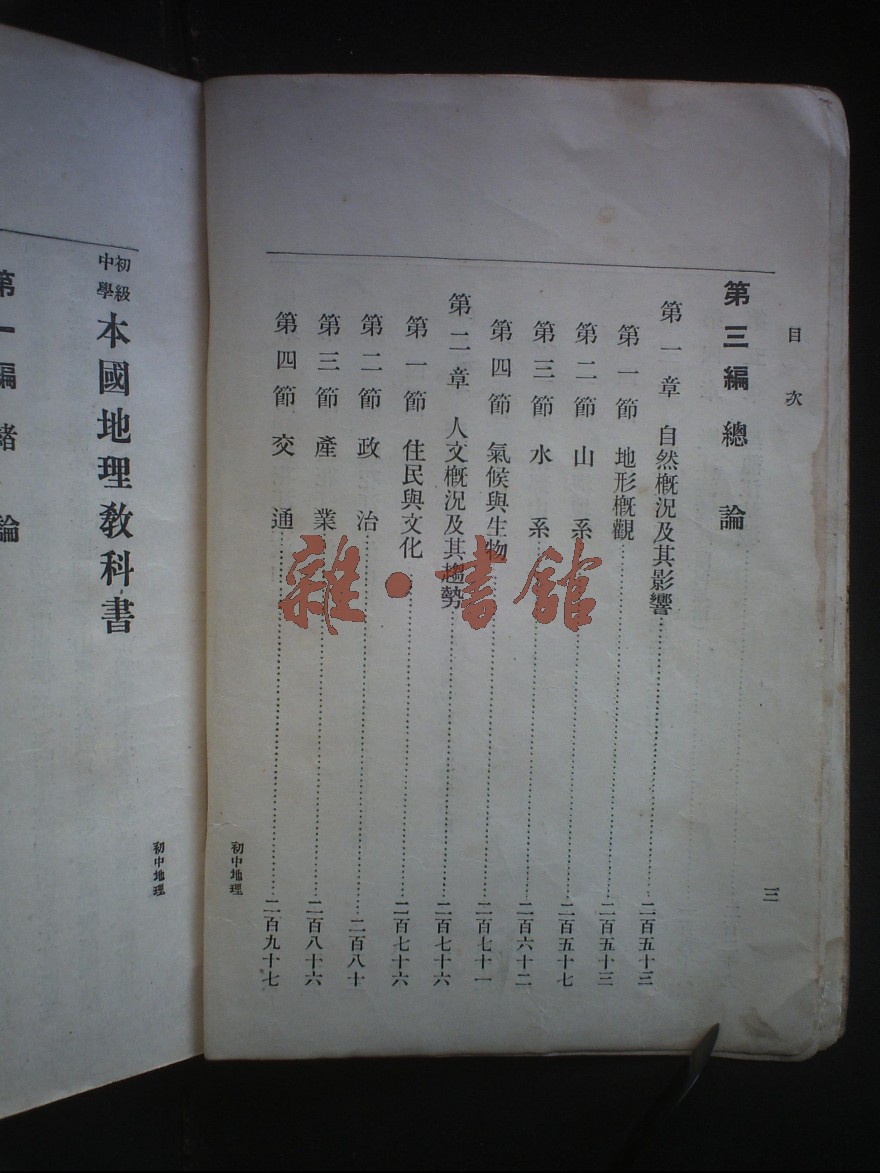 目次
三
第三編 總論
第一章 自然概況及其影響……二百五十三
第一節 地形概觀……二百五十三
第二節 山系……二百五十七
第三節 水系……二百六十二
第四節 氣候與生物……二百七十一
第二章 人文概況及其趨勢……二百七十六
第一節 住民與文化……二百七十六
第二節 政治……二百八十
第三節 產業……二百八十六
第四節 交通……二百九十七
初中地理
雜·書館
初級中學 本國地理教科書
第一編 緒論
初中地理